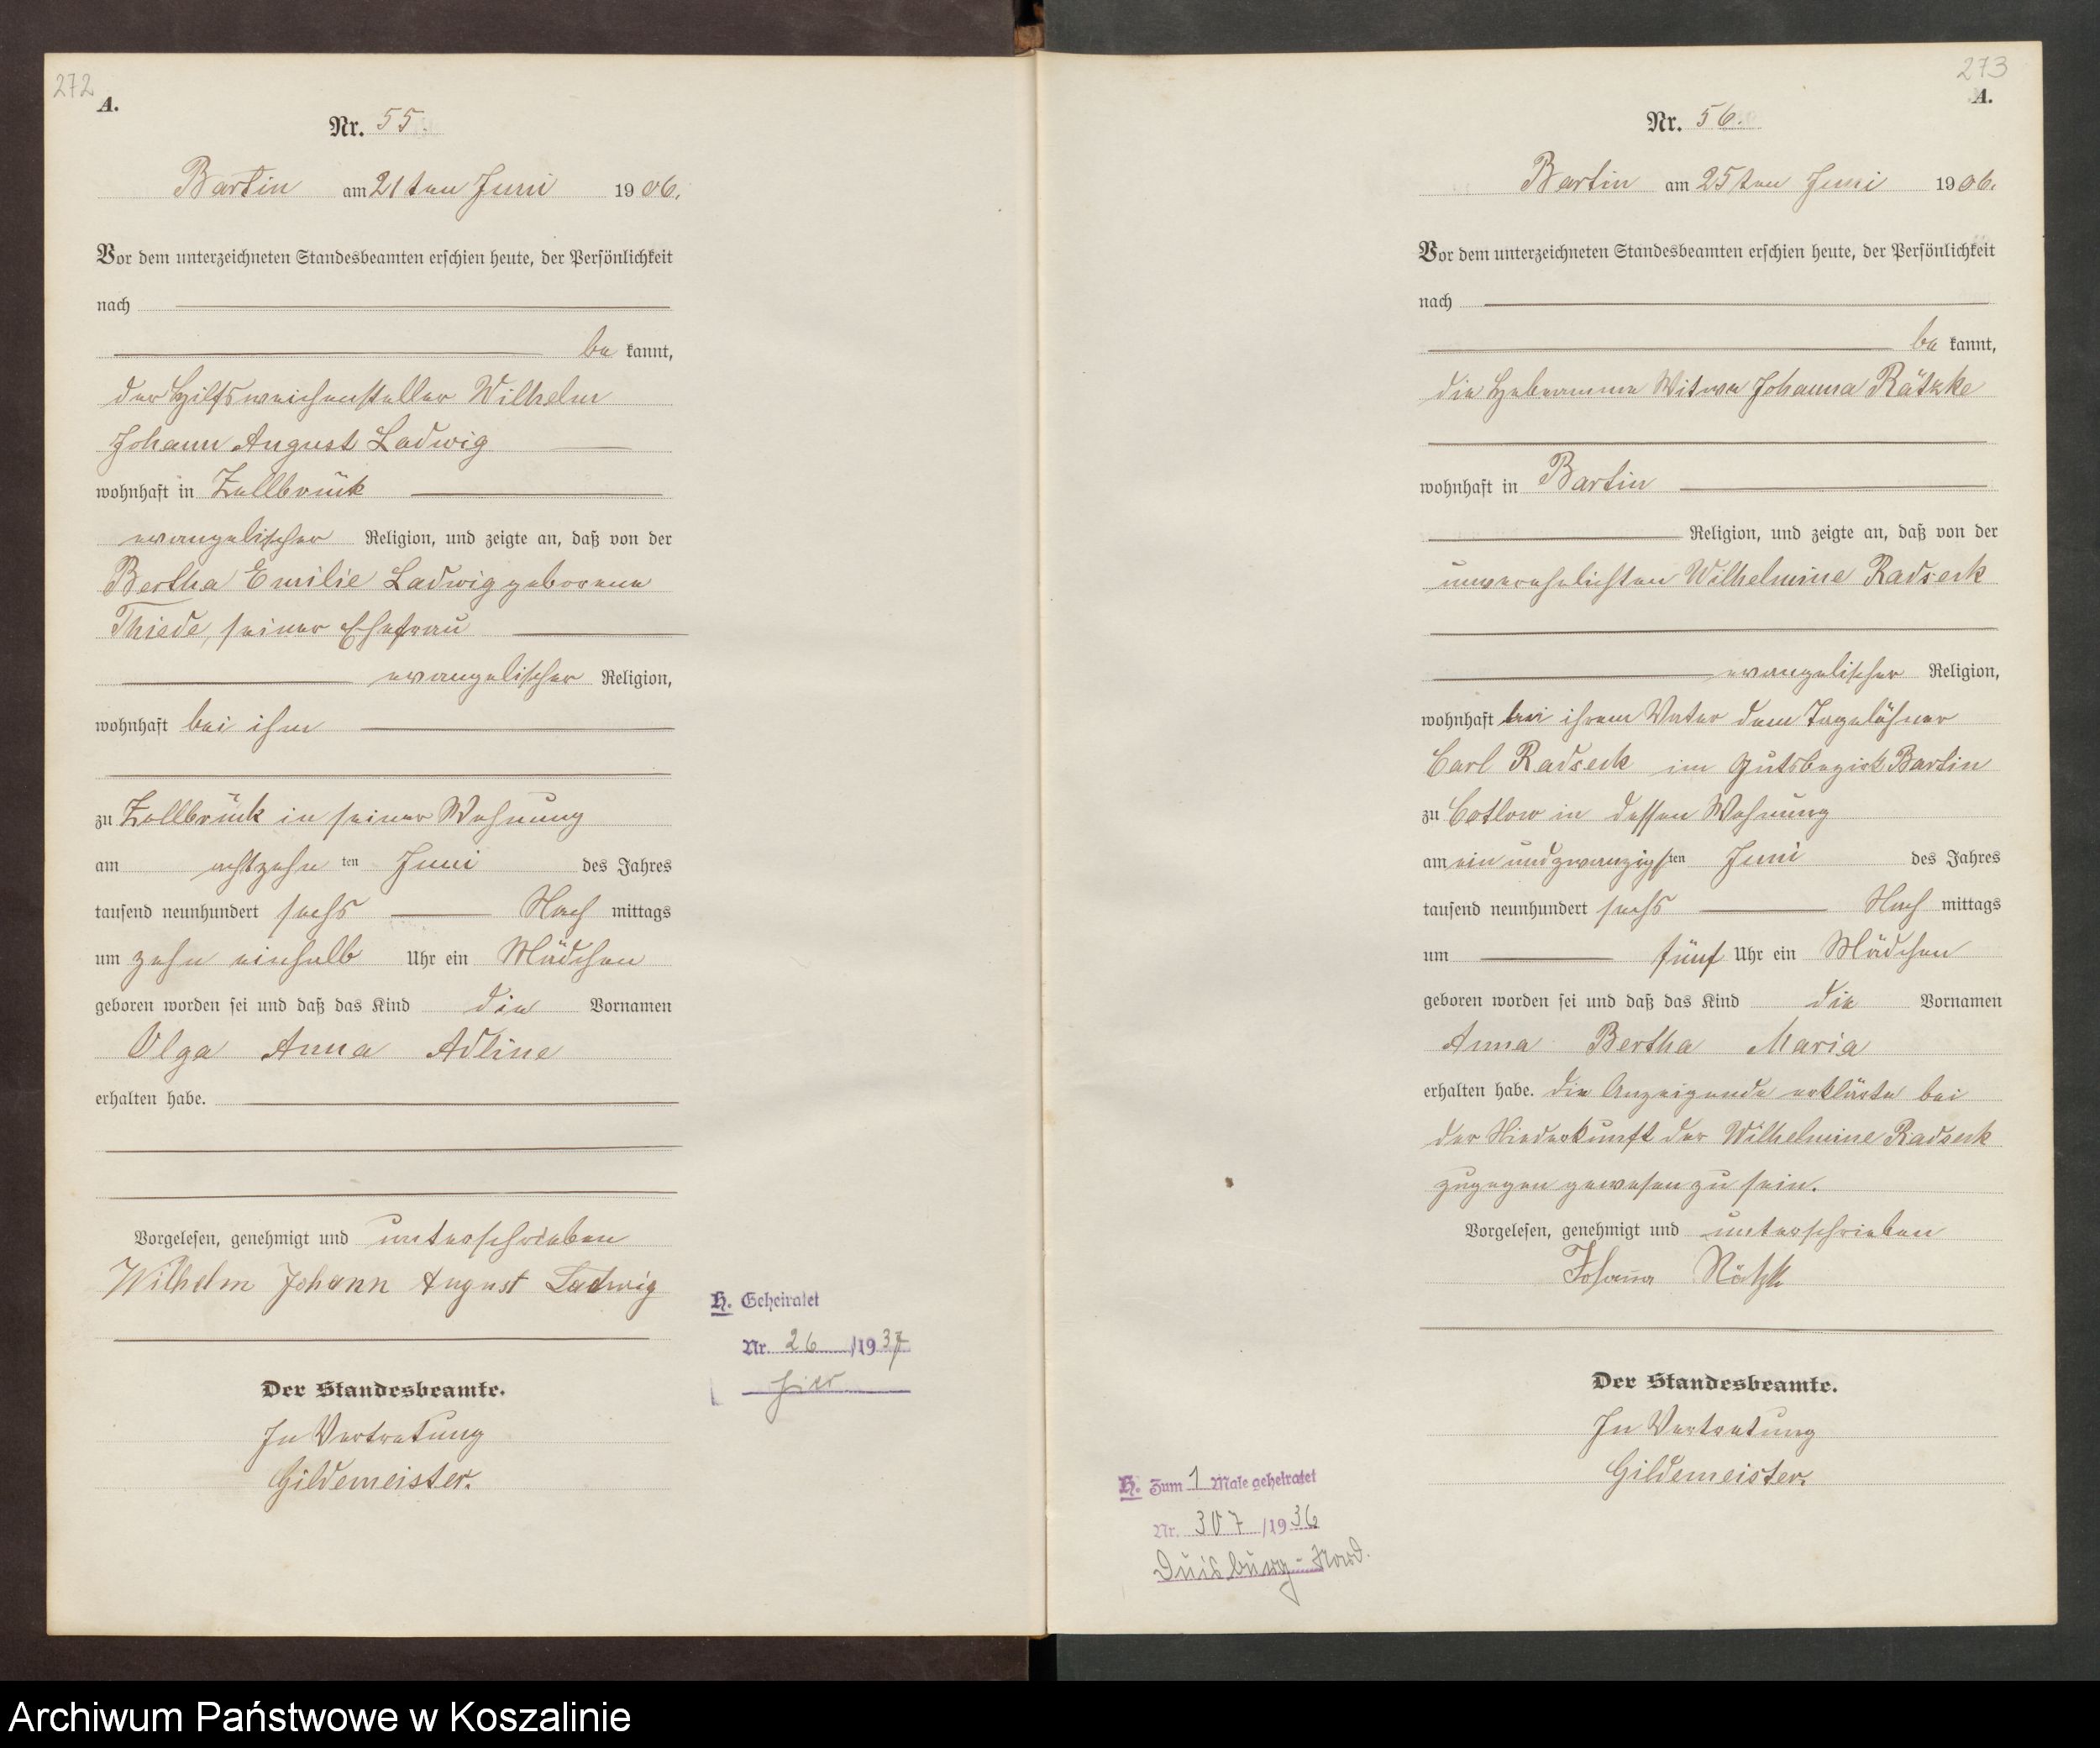 272
A.
Nr. 55.
Bartin am 21ten Juni 1906.
Vor dem unterzeichneten Standesbeamten erschien heute, der Persönlichkeit
nach
be kannt,
der Hilfsweichensteller Wilhelm
Johann August Ladwig
wohnhaft in Zollbrück
evangelischer Religion, und zeigte an, daß von der
Bertha Emilie Ladwig geborene
Thiede, seiner Ehefrau
evangelischer Religion,
wohnhaft bei ihm
zu Zollbrück in seiner Wohnung
am achtzehn ten Juni des Jahres
tausend neunhundert sechs Nach mittags
um zehn einhalb Uhr ein Mädchen
geboren worden sei und daß das Kind die Vornamen
Olga Anna Adline
erhalten habe.
Vorgelesen, genehmigt und unterschrieben
Wilhelm Johann August Ladwig
Der Standesbeamte.
In Vertretung
Gildemeister.
H. Geheiratet
Nr. 26 /1937
hier
273
A.
Nr. 56.
Bartin am 25ten Juni 1906.
Vor dem unterzeichneten Standesbeamten erschien heute, der Persönlichkeit
nach
be kannt,
die Hebeamme Witwe Johanna Rätzke
wohnhaft in Bartin
Religion, und zeigte an, daß von der
unverehelichten Wilhelmine Radseck
evangelischer Religion,
wohnhaft bei ihrem Vater dem Tagelöhner
Carl Radseck im Gutsbezirk Bartin
zu Cotlow in dessen Wohnung
am ein und zwanzigsten Juni des Jahres
tausend neunhundert sechs Nach mittags
um fünf Uhr ein Mädchen
geboren worden sei und daß das Kind die Vornamen
Anna Bertha Maria
erhalten habe. Die Anzeigende erklärte bei
der Niederkunft der Wilhelmine Radseck
zugegen gewesen zu sein.
Vorgelesen, genehmigt und unterschrieben
Johanna Rätzk
Der Standesbeamte.
In Vertretung
Gildemeister.
H. Zum 1 Male geheiratet
Nr. 307 /1936
Duisburg-Nord.
Archiwum Państwowe w Koszalinie